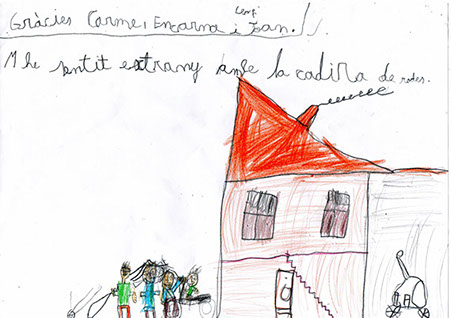 Gràcies Carme, Encarna i Joan.
M he sentit extrany amb la cadira de rodes.